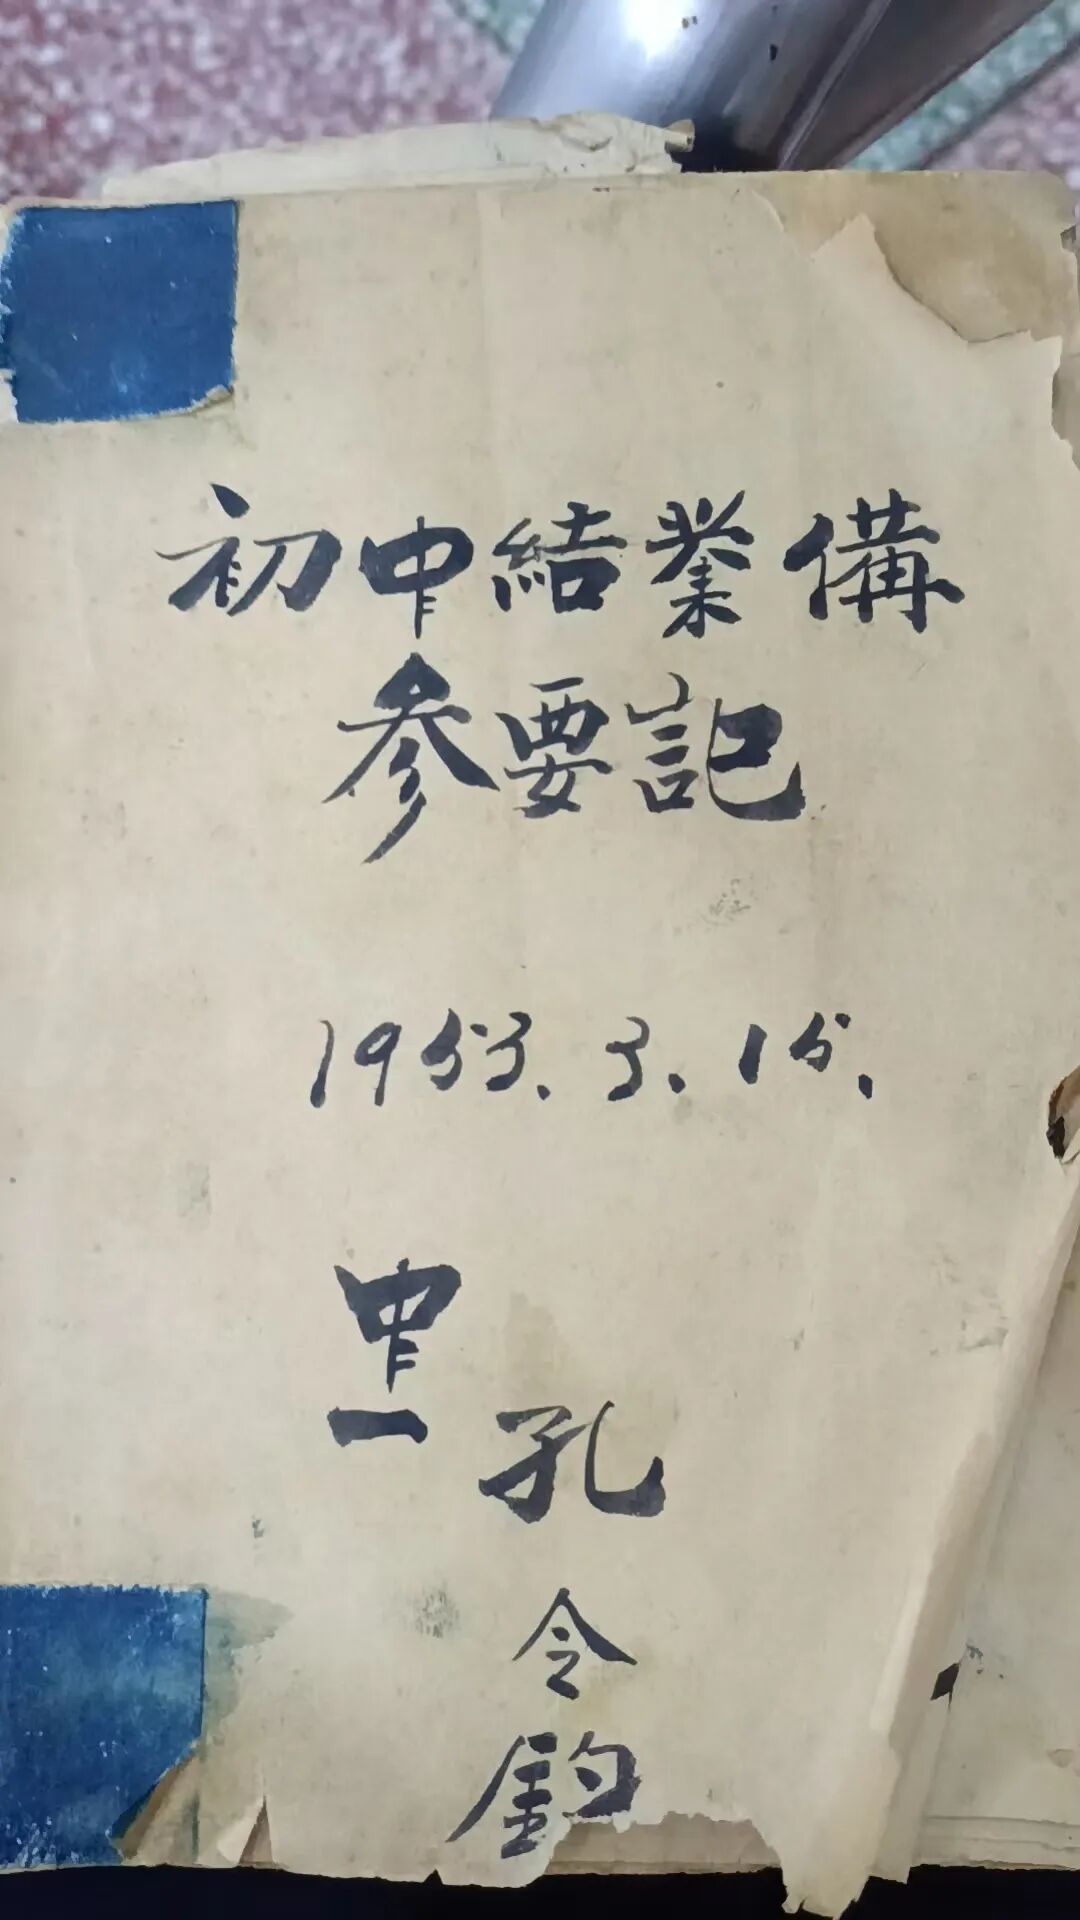 初中結業備
参要記
1953.3.15.
中一
孔令鈞